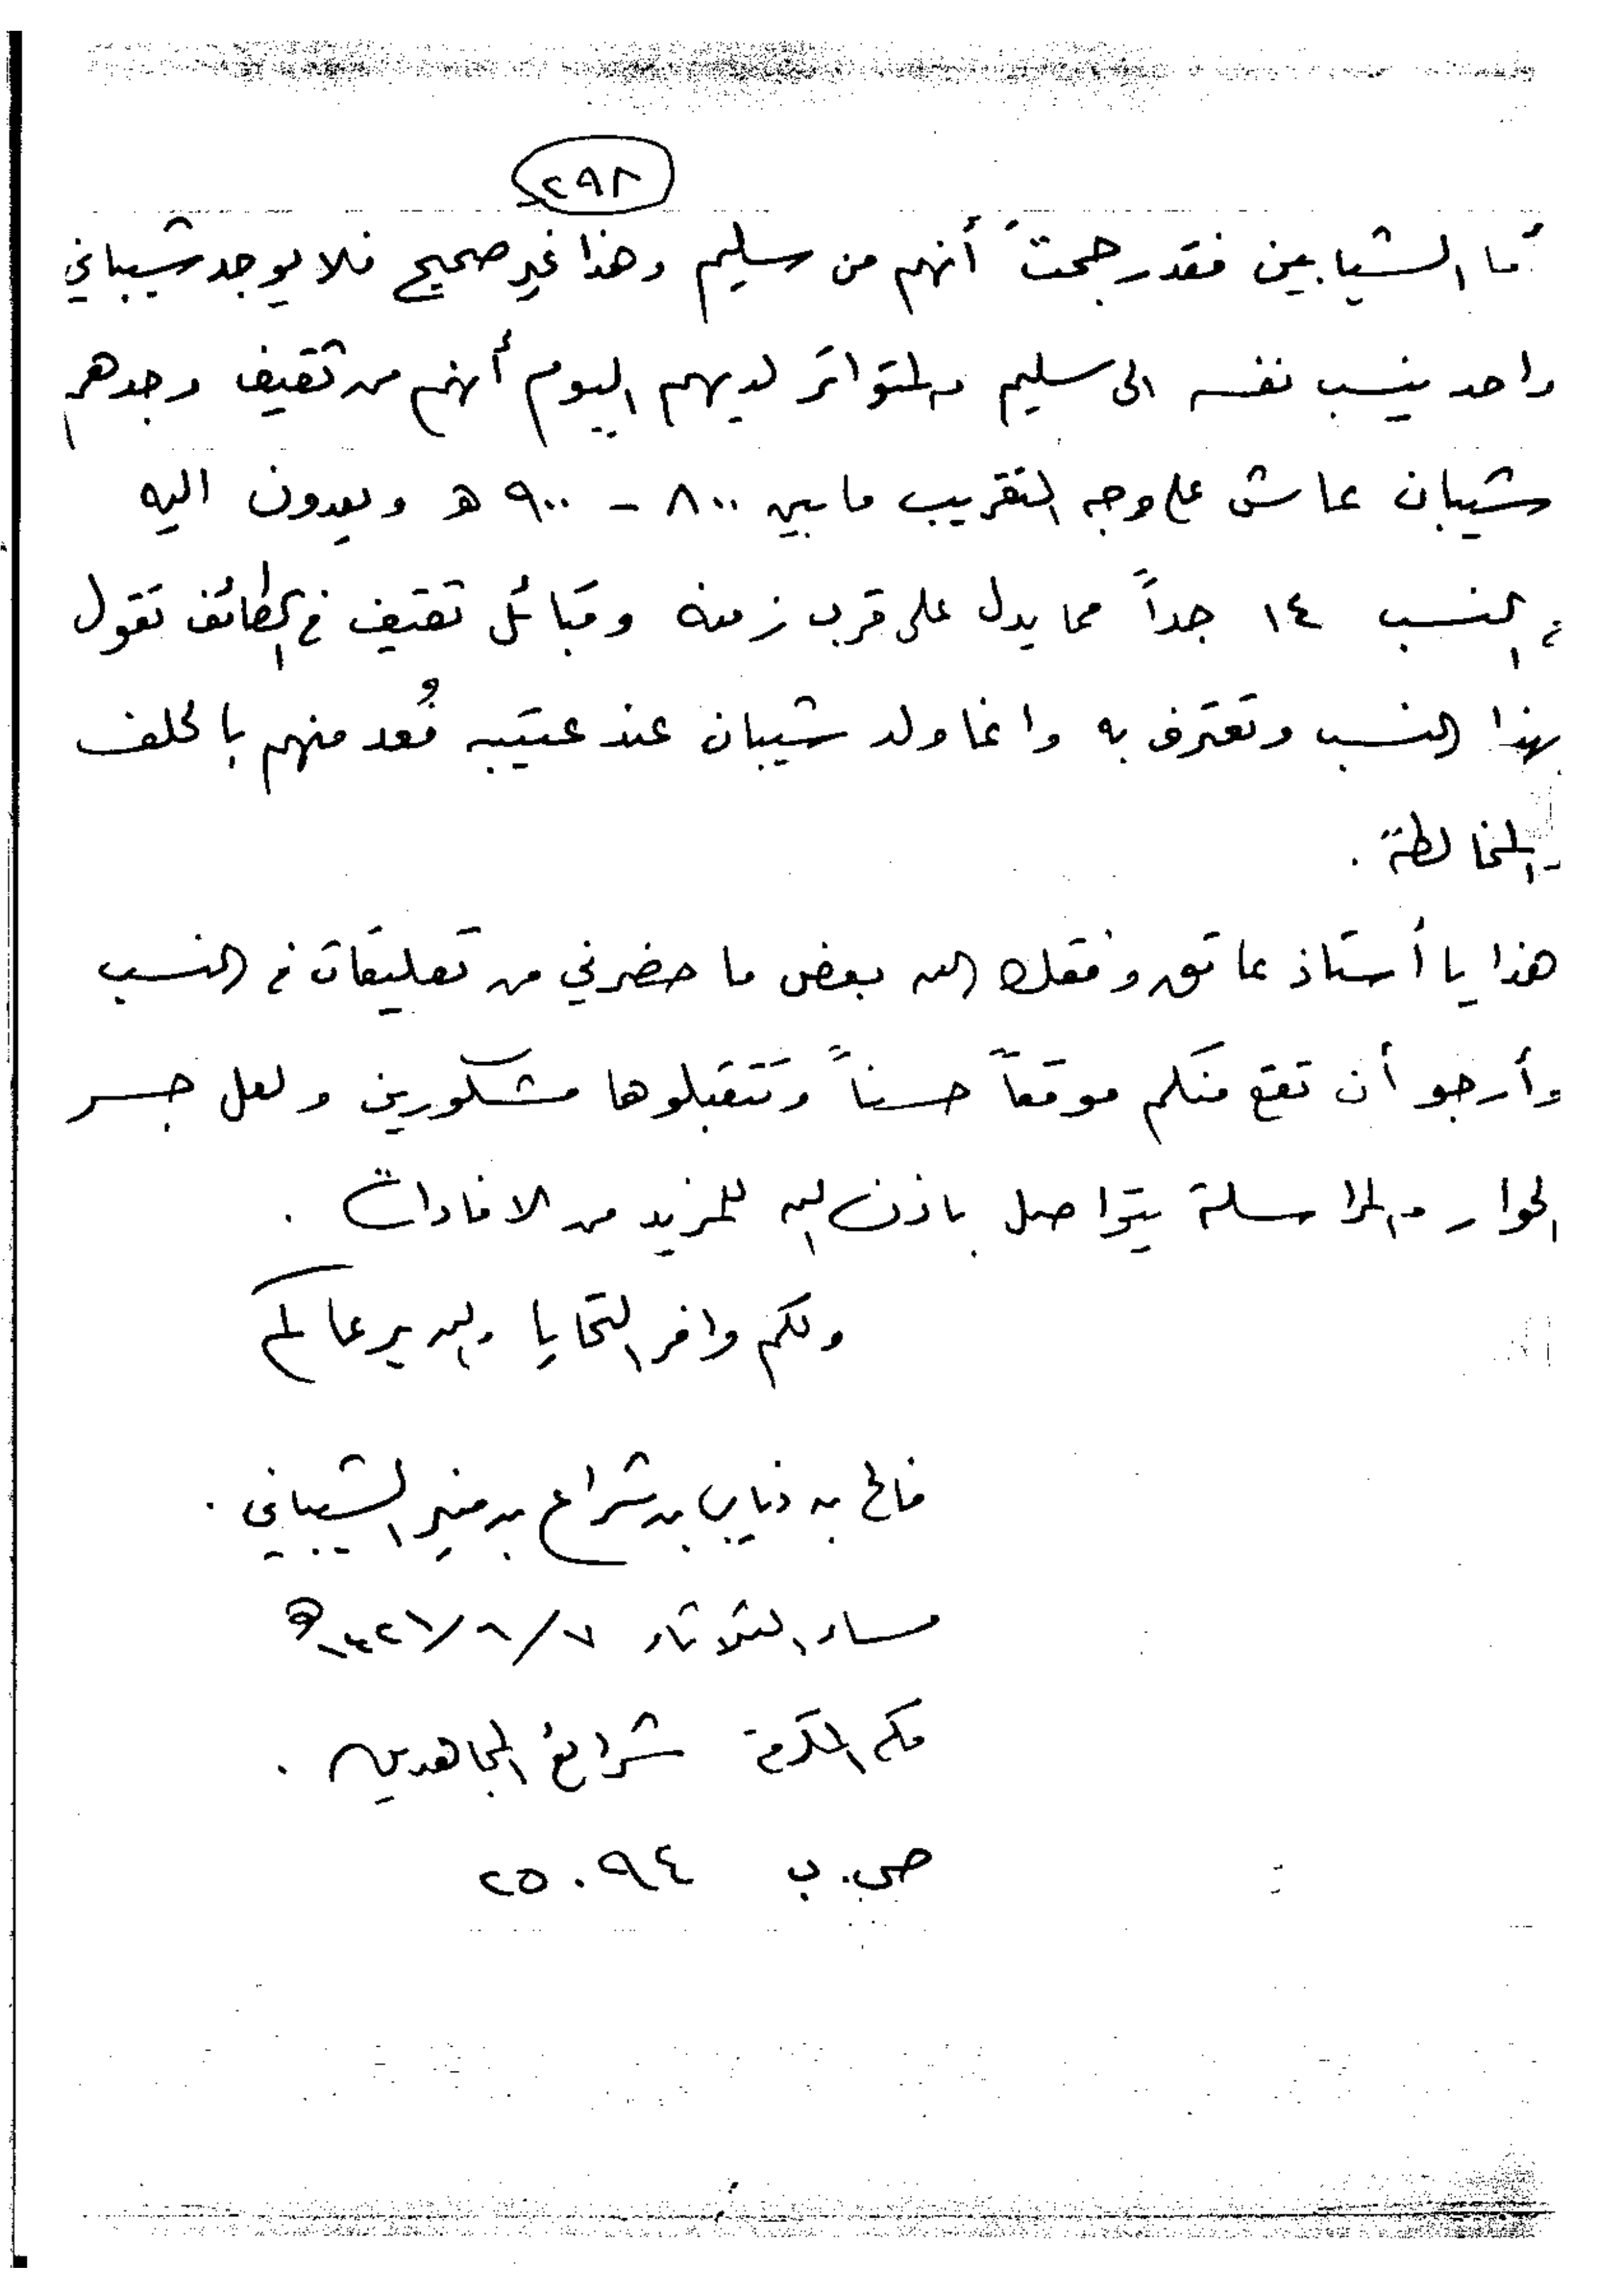 ٢٩٨
أما الشيابين فقد رجحت أنهم من سليم وهذا غير صحيح فلا يوجد شيباني
واحد ينسب نفسه الى سليم والمتواتر لديهم اليوم أنهم من ثقيف وجدهم
شيبان عاش على وجه التقريب ما بين ٨٠٠ - ٩٠٠ هـ ويعدون اليه
في النسب ١٤ جداً مما يدل على قرب زمنه وقبائل ثقيف في الطائف تقول
بهذا النسب وتعترف به وانما ولد شيبان عند عتيبه فُعد منهم بالحلف
والمخالطة .
هذا يا أستاذ عاتق وفقك الله بعض ما حضرني من تعليقات في النسب
وأرجو أن تقع منكم موقعاً حسناً وتتقبلوها مشكورين ولعل جسر
الحوار والمراسلة يتواصل باذن الله للمزيد من الافادات .
ولكم وافر التحايا والله يرعاكم
فالح بن ذياب بن شراع بن منير الشيباني .
مساء الثلاثاء ٧/٨/١٤٢١هـ
مكه المكرمة شرائع المجاهدين .
ص.ب ٢٥٠٩٤